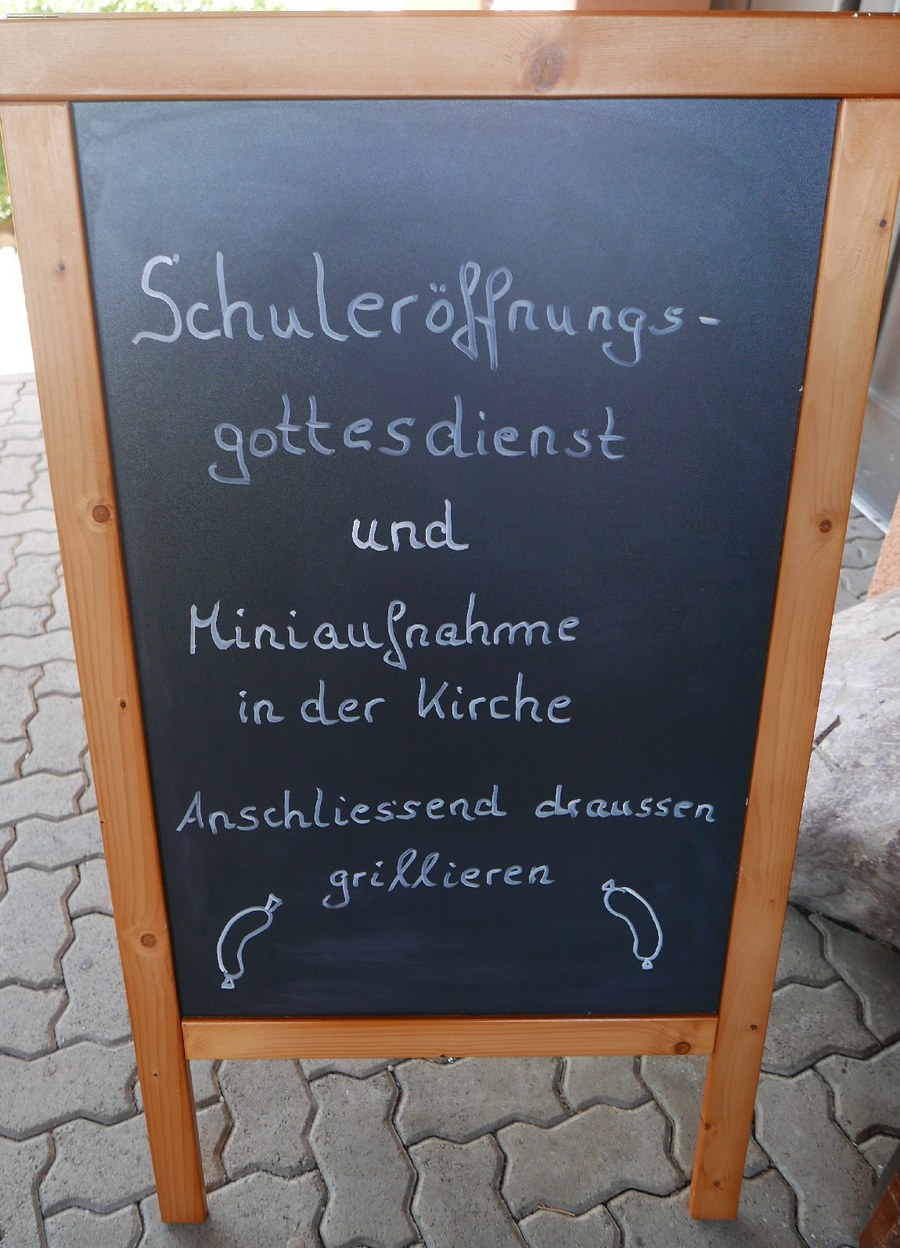 Schuleröffnungs-
gottesdienst
und
Miniaufnahme
in der Kirche
Anschliessend draussen
grillieren